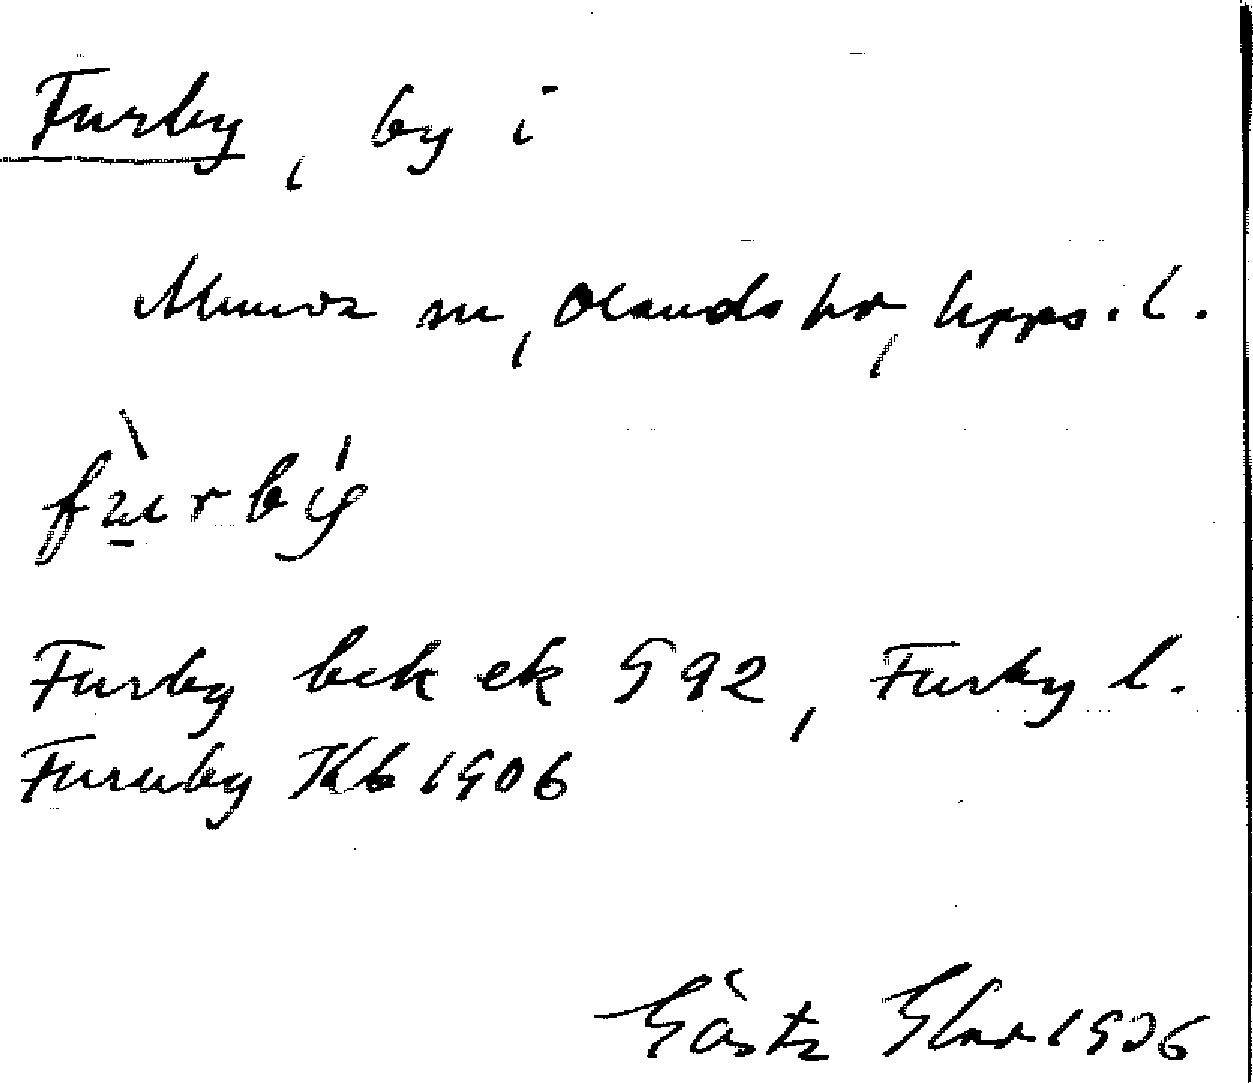 Furby, by i
Almunge sn, Olands hd, Upps. l.
fùrbý
Furby bek ek 592, Furby l.
Furuby Kb 1906
Gösta 1936